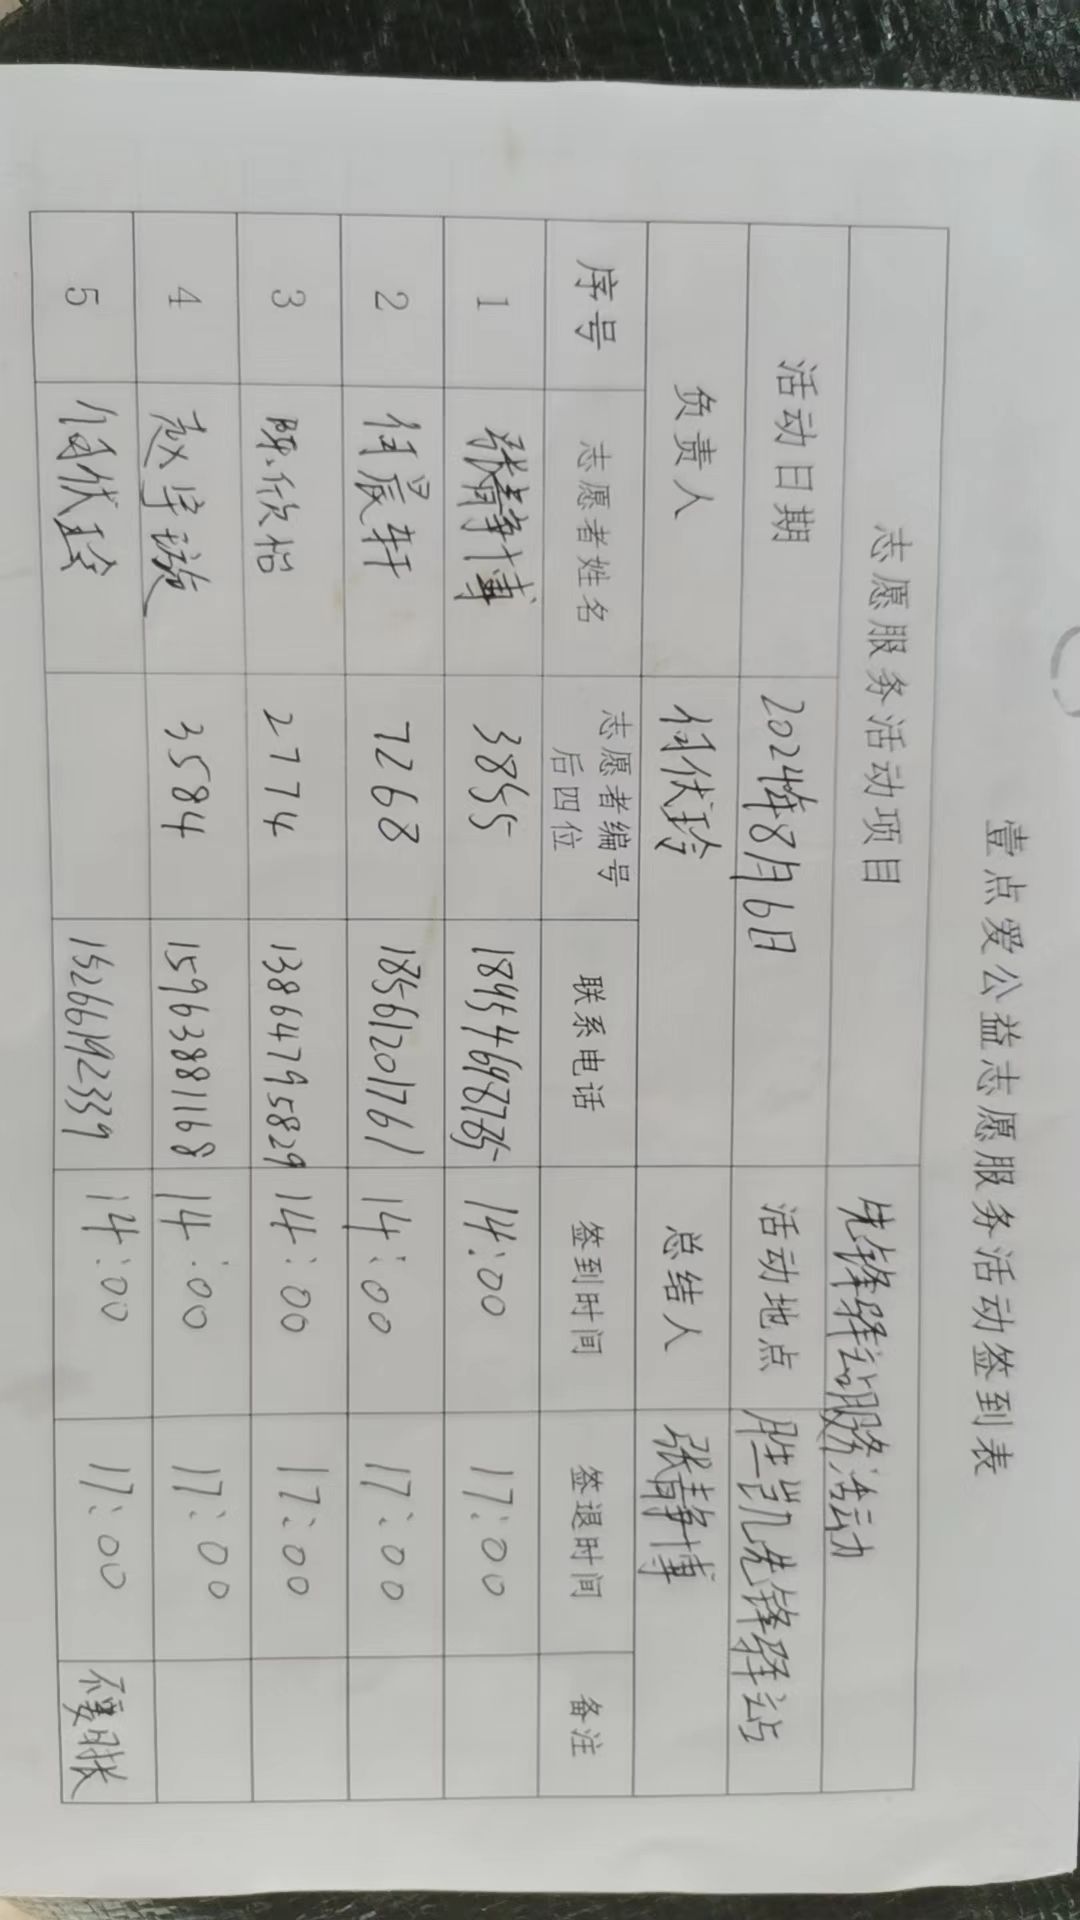 壹点爱公益志愿服务活动签到表
志愿服务活动项目 先锋驿站服务活动
活动日期 2024年8月6日 活动地点 胜凯先锋驿站
负责人 何伏玲 总结人 张静博
序号 志愿者姓名 志愿者编号后四位 联系电话 签到时间 签退时间 备注
1 张静博 3855 18454698765 14:00 17:00
2 何晨轩 7268 18561201761 14:00 17:00
3 陈欣怡 2774 13864795829 14:00 17:00
4 赵宇璇 3584 15963881168 14:00 17:00
5 何伏玲 15266192339 14:00 17:00 不要时长